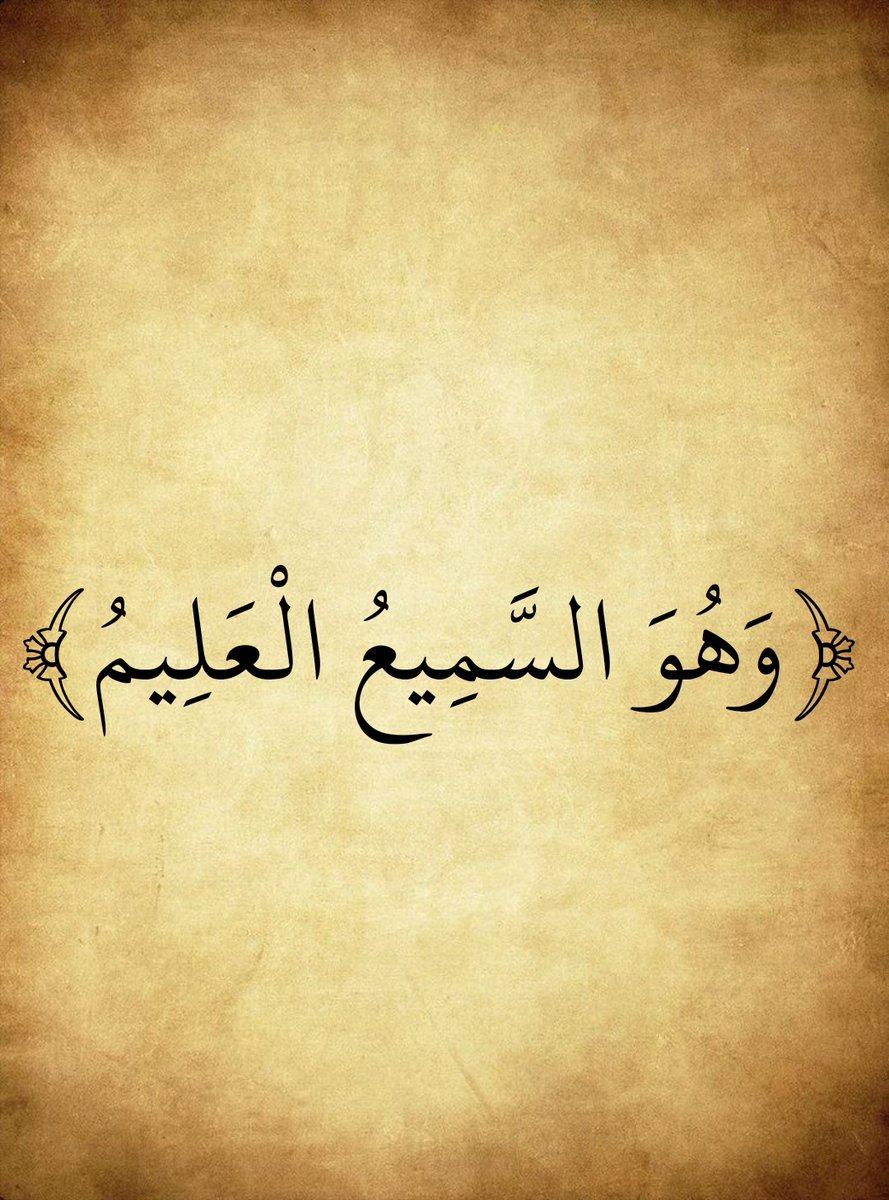 ﴿وَهُوَ السَّمِيعُ الْعَلِيمُ﴾